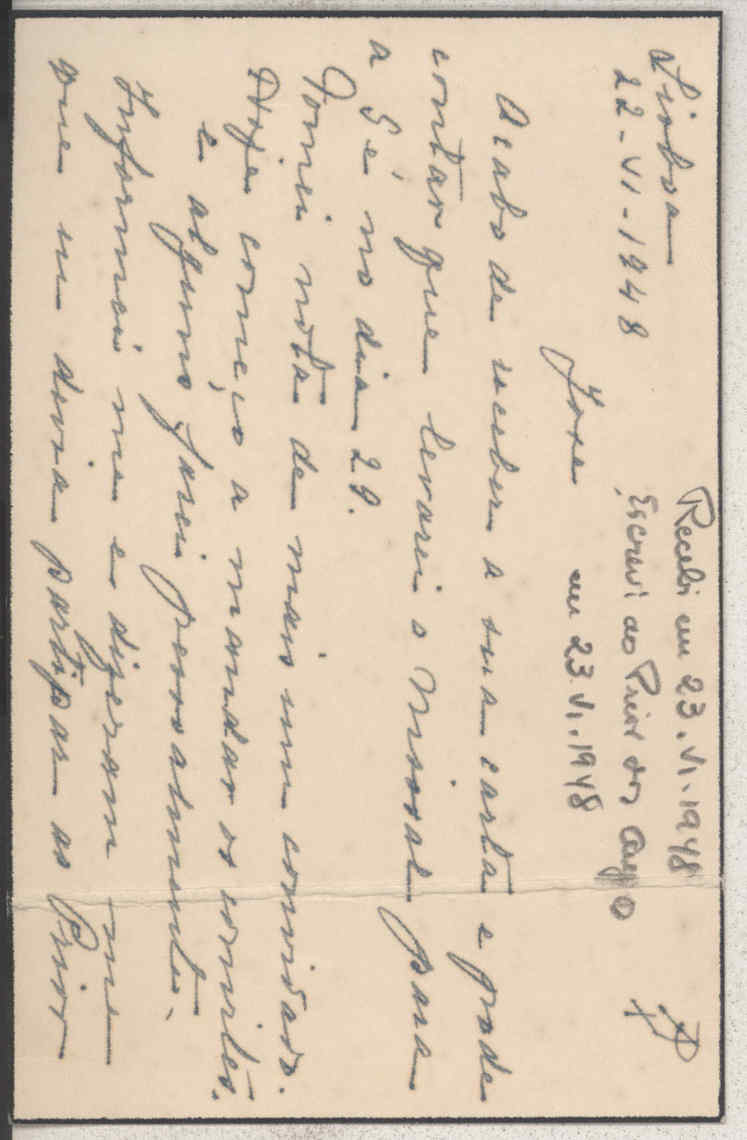 Lisboa
22-VI-1948
Recebi em 23.VI.1948
Escrevi ao Prior
em 23.VI.1948
José
Acabo de receber a sua carta e pode
contar que levarei o Missal para
a Sé no dia 29.
Tomei nota de mais um convidado.
Hoje começo a mandar os convites,
e alguns farei pessoalmente.
Informei me e disseram me
que se devia partipar ao Prior